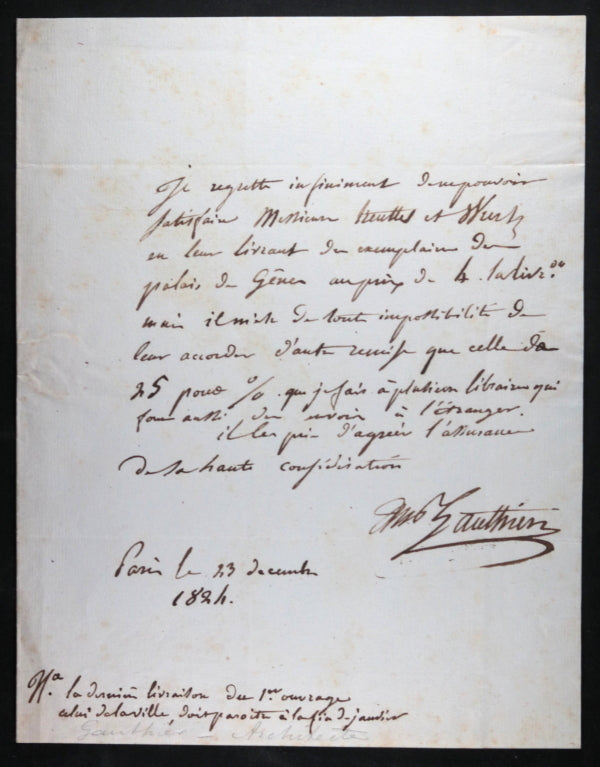 Je regrette infiniment de ne pouvoir
satisfaire Messieurs et Wurtz
en leur livrant des exemplaires des
palais de Gênes au prix de 4. la livr.on
mais il m'est de toute impossibilité de
leur accorder d'autre remise que celle de
25 pour % que je fais à plusieurs libraires qui
font aussi des envois à l'étranger.
il les prie d'agréer l'assurance
de sa haute considération
Gauthier
Paris le 23 decembre
1824.
N.a la dernière livraison du 1er ouvrage
celui de la ville, doit paroitre à la fin de janvier
Gauthier - Architecte